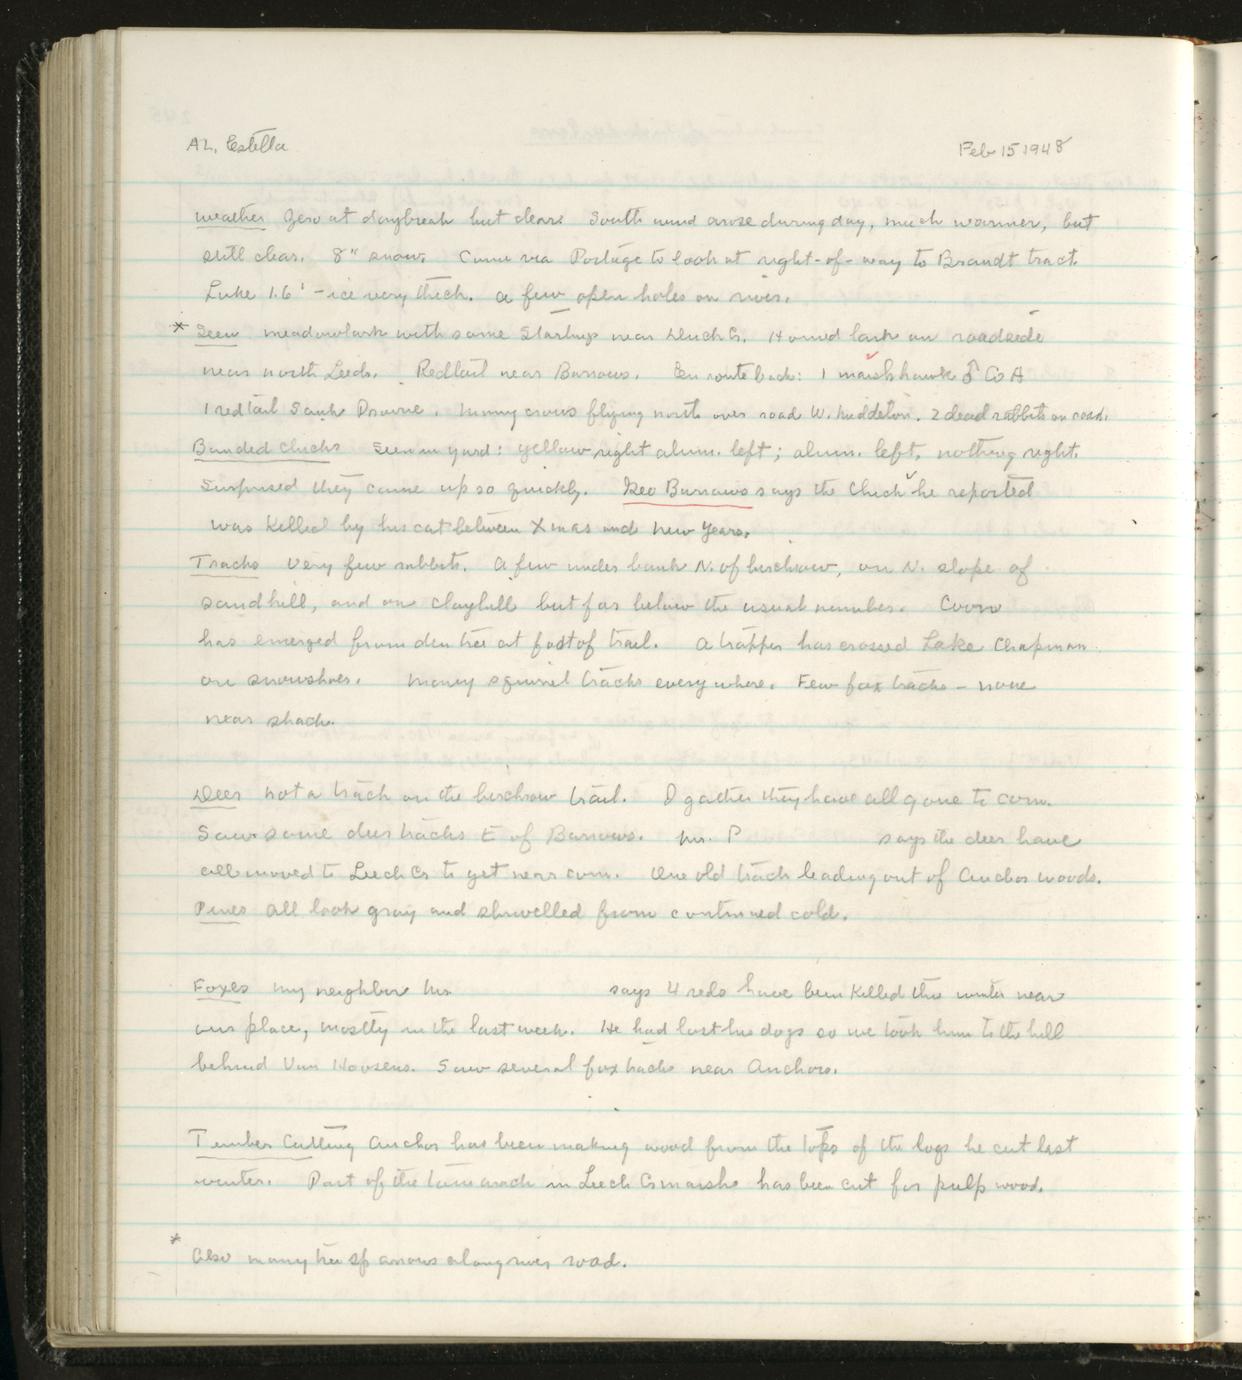 AL, Estella Feb 15 1948
Weather Zero at daybreak but clear. South wind arose during day, much warmer, but
still clear. 8" snow. Came via Portage to look at right-of-way to Brandt tract.
Lake 1.6' - ice very thick. A few open holes on river.
* Seen meadowlark with some Starlings near Leech Cr. Horned lark on roadside
near north Leeds. Redtail near Barrows. En route back: 1 marsh hawk ♂ Co A
1 redtail Sauk Prairie. Many crows flying north over road W. Middleton. 2 dead rabbits on road.
Banded Chicks Seen in yard: yellow right alum. left; alum. left, nothing right.
Surprised they came up so quickly. Geo Barrows says the Chick he reported
was killed by his cat between Xmas and New Years.
Tracks Very few rabbits. A few under bank N. of birchrow, on N. slope of
sandhill, and on clayhill but far below the usual number. Coon
has emerged from den tree at foot of trail. A trapper has crossed Lake Chapman
on snowshoes. Many squirrel tracks everywhere. Few fox tracks - none
near shack.
Deer Not a track on the birchrow trail. I gather they have all gone to corn.
Saw some deer tracks E of Barrows. Mr. P says the deer have
all moved to Leech Cr to get near corn. One old track leading out of Anchor woods.
Pines All look gray and shrivelled from continued cold.
Foxes My neighbor Mr. says 4 reds have been killed this winter near
our place, mostly in the last week. He had lost his dogs so we took him to the hill
behind Van Hoosens. Saw several fox tracks near Anchors.
Timber Cutting Anchor has been making wood from the tops of the logs he cut last
winter. Part of the tamarack in Leech Cr marsh has been cut for pulp wood.
* Also many tree sparrows along river road.